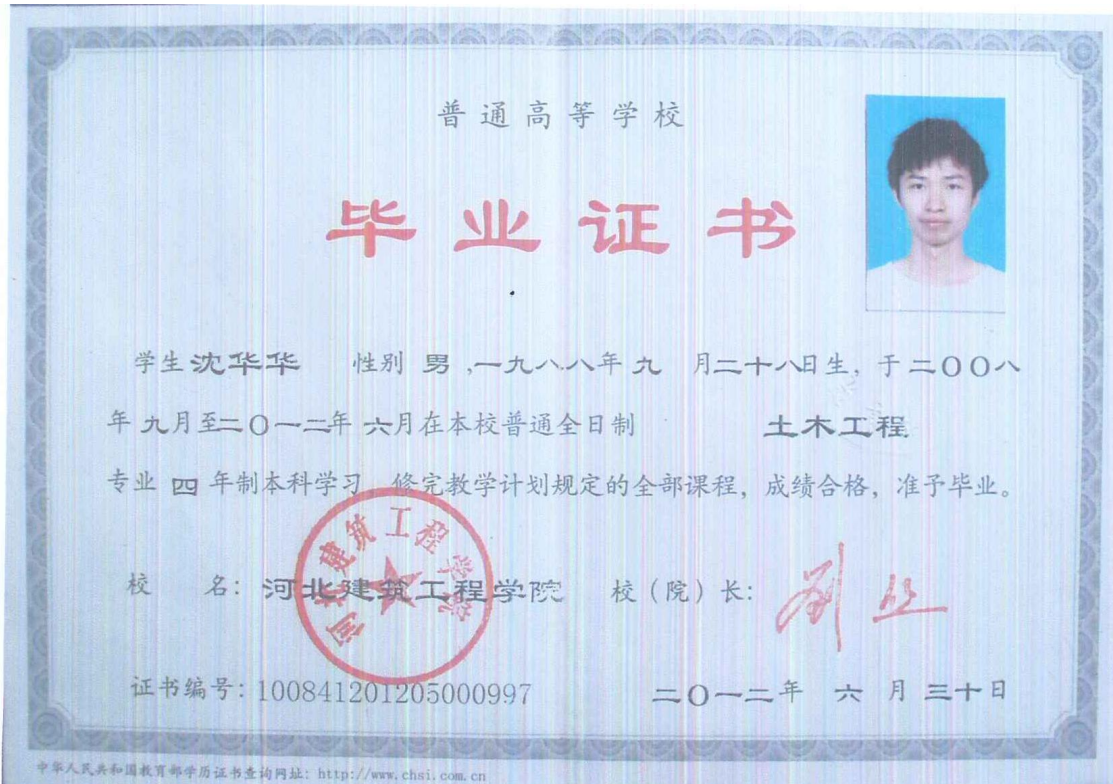 普通高等学校
毕业证书
学生 沈华华 性别 男 ,一九八八年 九 月二十八日生，于二〇〇八
年 九月至二〇一二年 六月在本校普通全日制 土木工程
专业 四 年制本科学习，修完教学计划规定的全部课程，成绩合格，准予毕业。
河北建筑工程学院
校 名：河北建筑工程学院 校（院）长：
证书编号：100841201205000997 二〇一二年 六 月 三十日
中华人民共和国教育部学历证书查询网址：http://www.chsi.com.cn